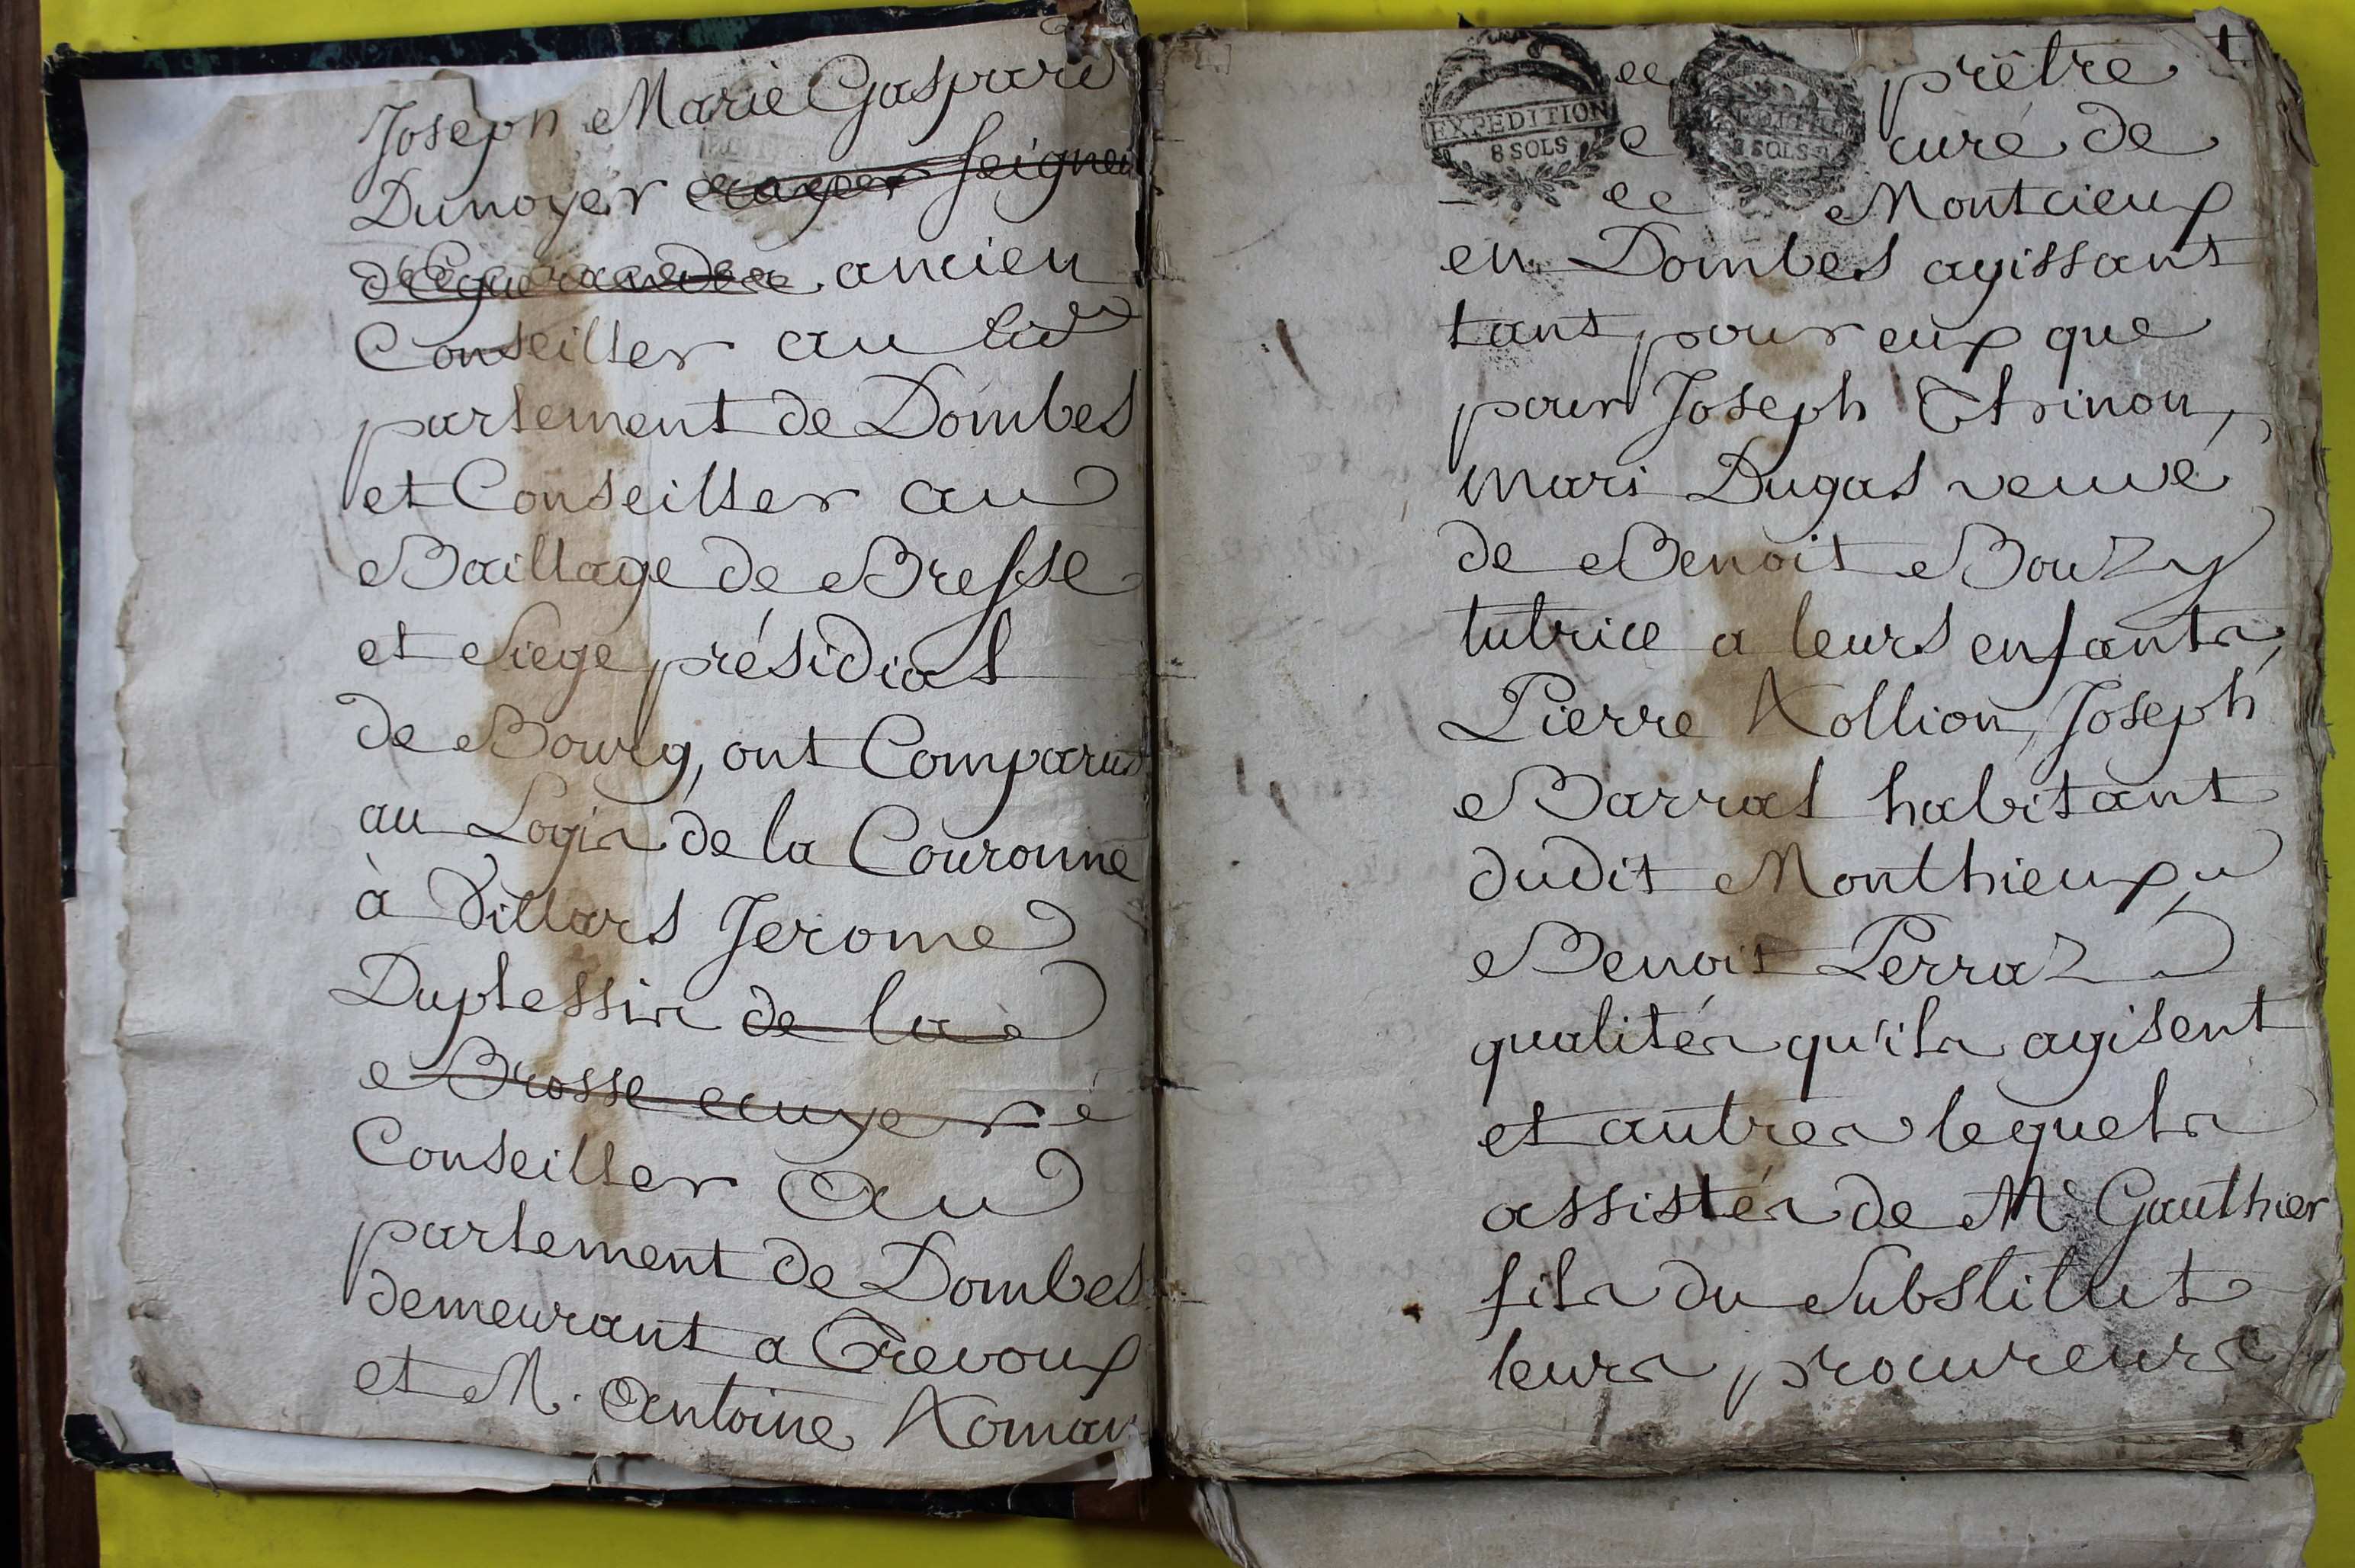 Joseph Marie Gaspard
Dunoyer seigneu
ancien
Conseiller au
parlement de Dombes
et Conseiller au
Baillage de Bresse
et Siege présidial
de Bourg, ont Comparus
au Logis de la Couronne
à Villars Jerome
Duplessis de la
Brosse ecuyer
Conseiller au
parlement de Dombes
demeurant a Trevoux
et M. Antoine
1
prêtre
EXPEDITION
8 SOLS
8 SOLS
curé de
Montcieux
en Dombes agissant
tant pour eux que
pour Joseph Thinon,
mari Dugas veuve
de Benoit Bouzy
tutrice a leurs enfants,
Pierre Rollion, Joseph
Barral habitant
dudit Monthieux,
Benoit Perraz
qualités qu'ils agisent
et autres lequels
assistés de Me Gauthier
fils du Substitut
leurs procureurs